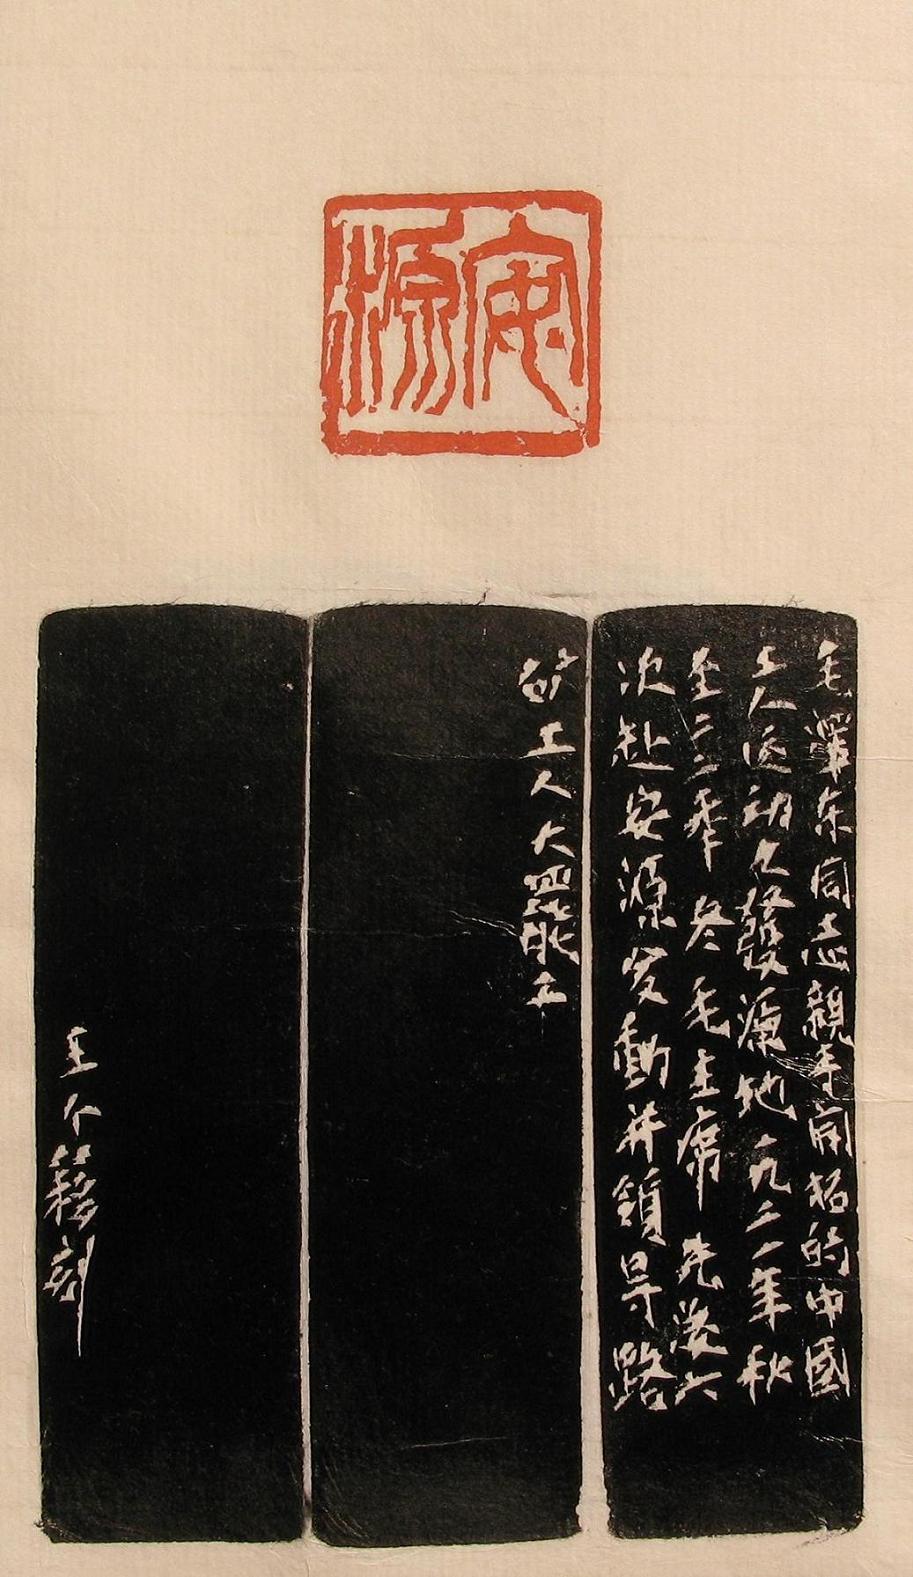 安源
毛澤东同志親手開拓的中國
工人运动之發源地一九二一年秋
至二三秊冬毛主席先後六
次赴安源发動并領导路
矿工人大罷工
王个簃刻